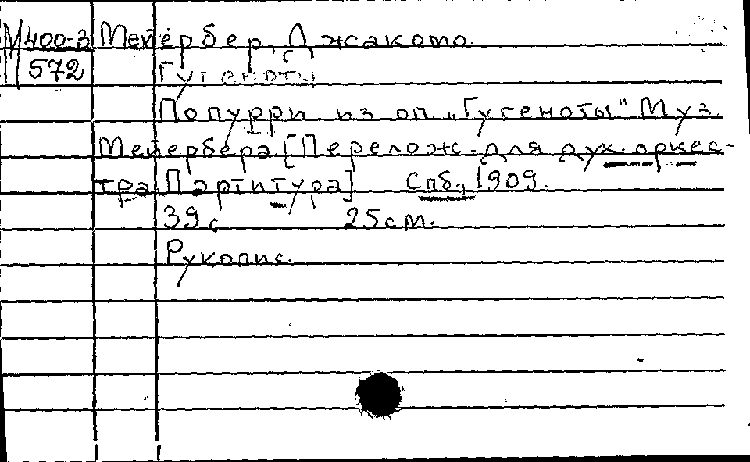 М400-3 Мейербер, Джакомо.
572 Гугеноты
Попурри из оп. „Гугеноты" Муз.
Мейербера. [Перелож. для дух. оркес-
тра. Партитура] Спб., 1909.
39 с 25 см.
Рукопис.